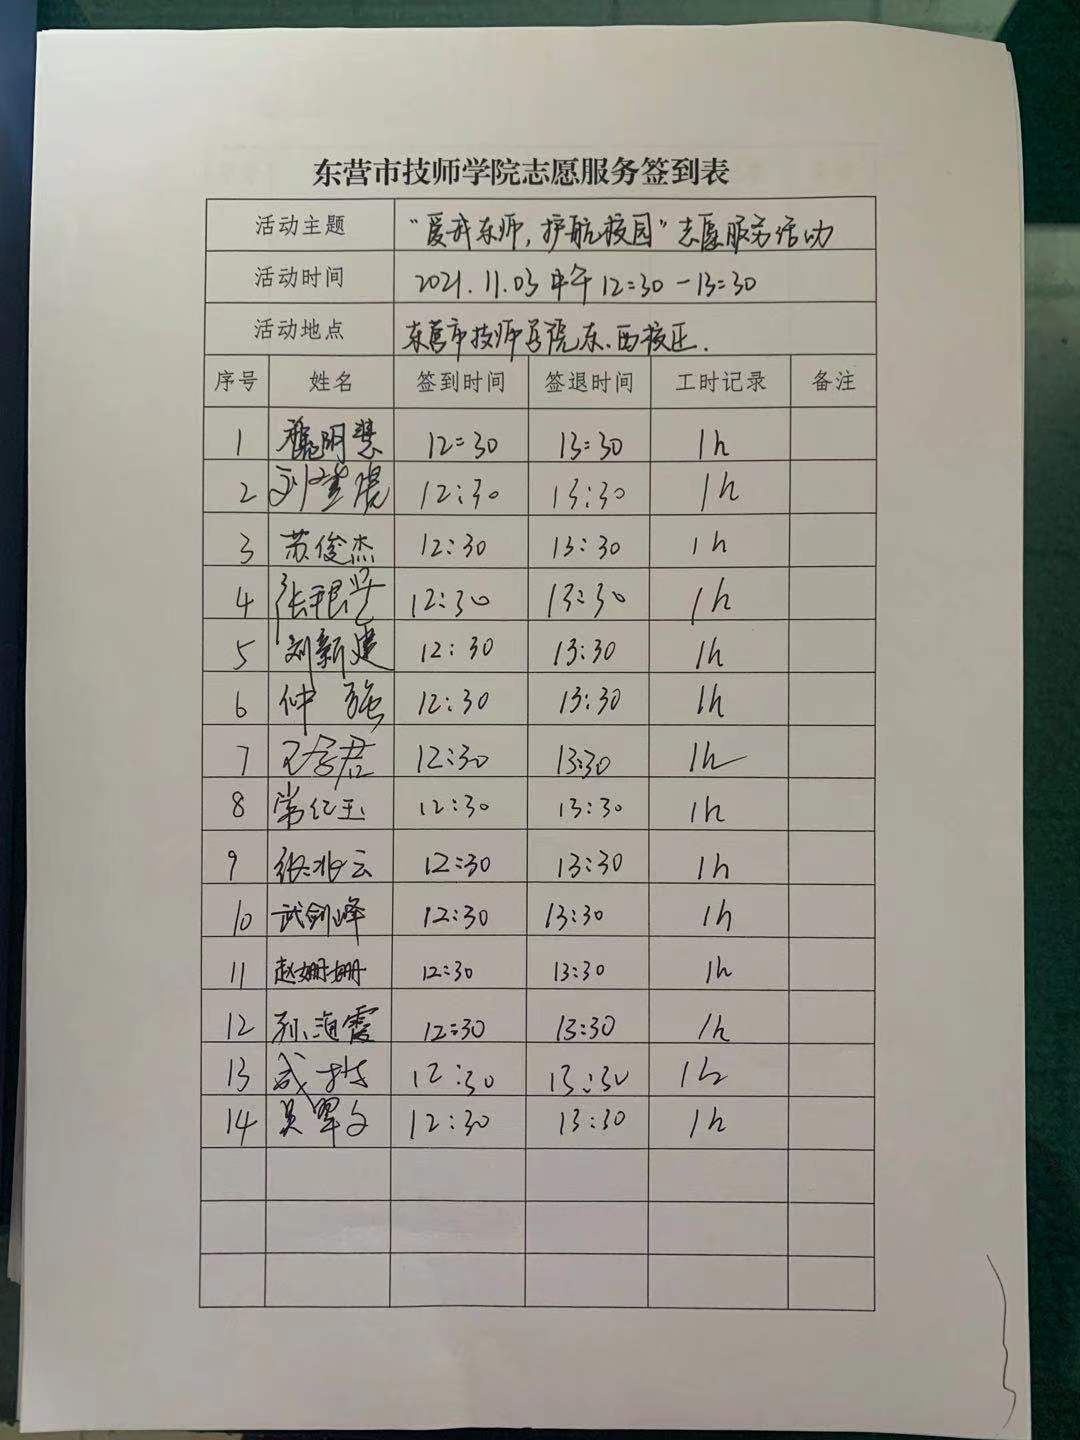 东营市技师学院志愿服务签到表
活动主题 “爱我东师，护航校园”志愿服务活动
活动时间 2021.11.03 中午 12:30-13:30
活动地点 东营市技师学院东、西校区.
序号 姓名 签到时间 签退时间 工时记录 备注
1 明慧 12:30 13:30 1h
2 刘 12:30 13:30 1h
3 苏俊杰 12:30 13:30 1h
4 张 12:30 13:30 1h
5 刘新建 12:30 13:30 1h
6 仲强 12:30 13:30 1h
7 王君 12:30 13:30 1h
8 常红玉 12:30 13:30 1h
9 张兆云 12:30 13:30 1h
10 武剑峰 12:30 13:30 1h
11 赵姗姗 12:30 13:30 1h
12 孙海霞 12:30 13:30 1h
13 成 12:30 13:30 1h
14 吴翠文 12:30 13:30 1h